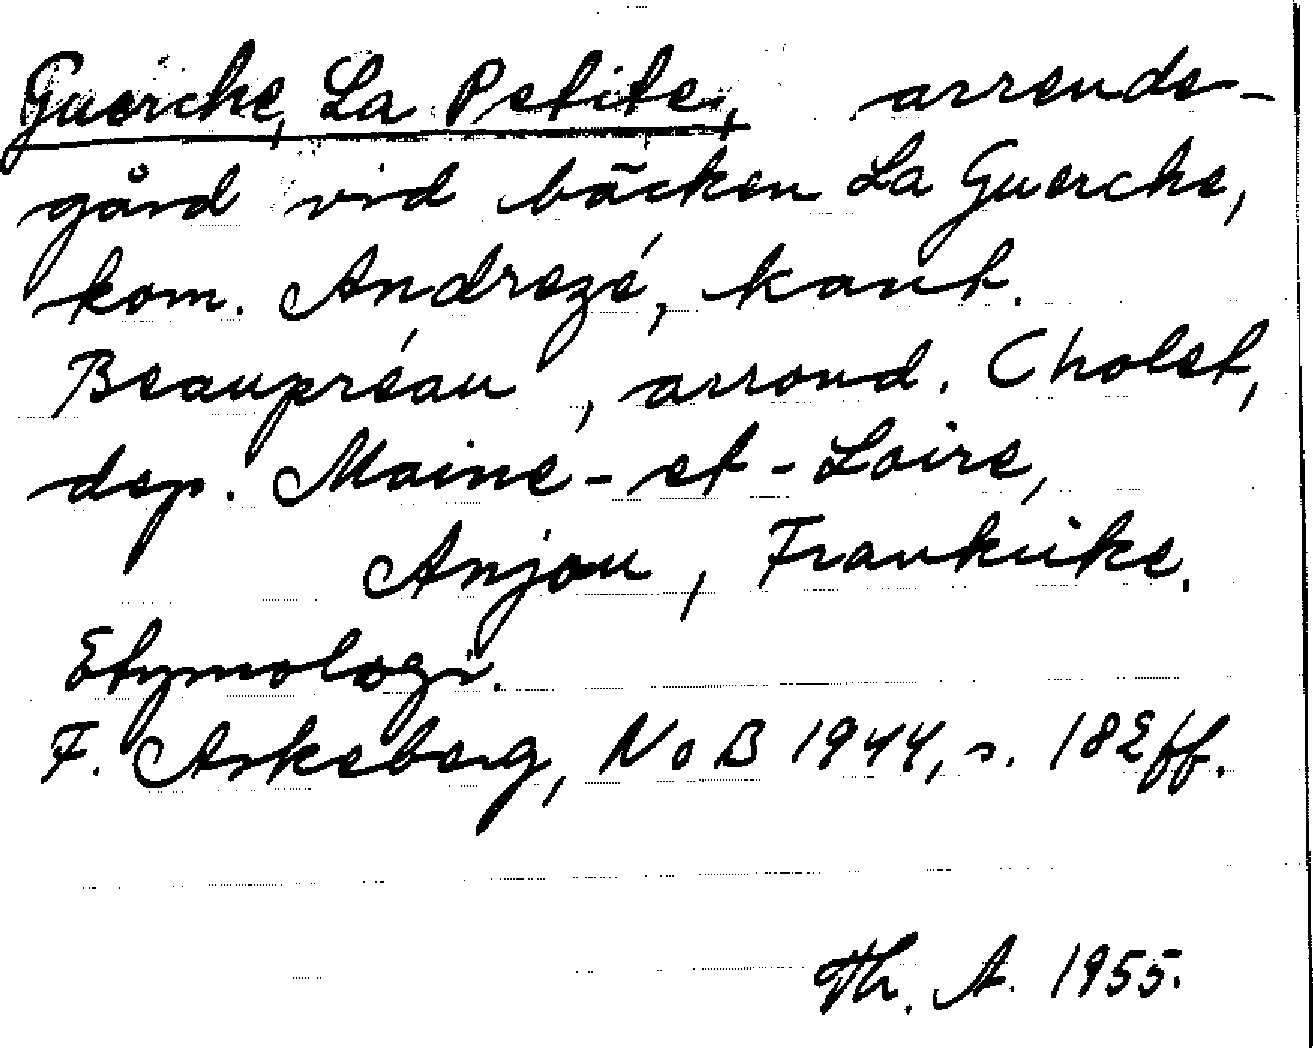 Guerche, La Petite, arrende-
gård vid bäcken La Guerche,
kom. Andrezé, kant.
Beaupréau, arrond. Cholet,
dep. Maine-et-Loire,
Anjou, Frankrike.
Etymologi.
F. Askeberg, NoB 1944, s. 182ff.
Th. A. 1955.